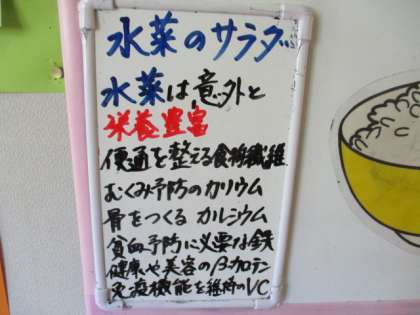 水菜のサラダ
水菜は意外と
栄養豊富
便通を整える食物繊維
むくみ予防のカリウム
骨をつくる カルシウム
貧血予防に必要な鉄
健康や美容のβカロテン
免疫機能を維持のVC